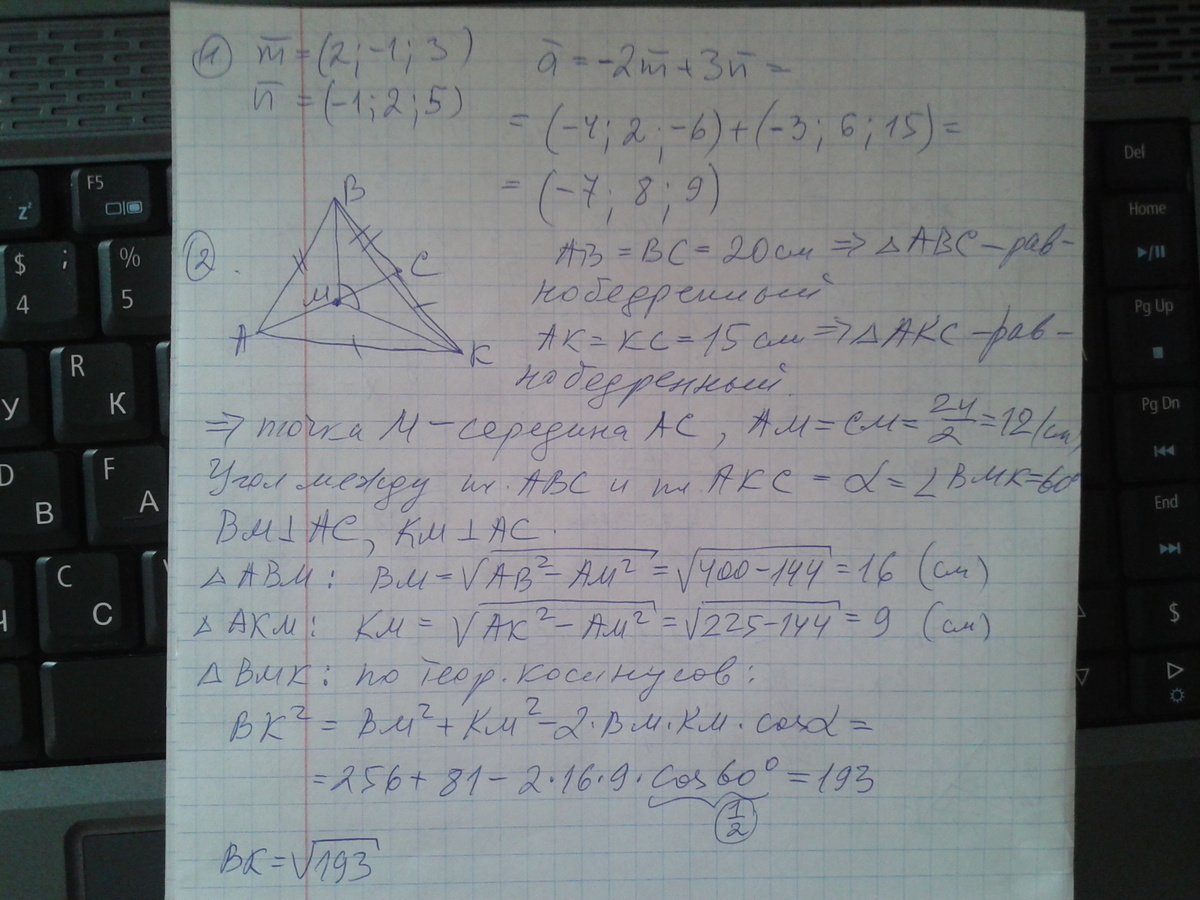 1 m̅ = (2; -1; 3)
n̅ = (-1; 2; 5)
a̅ = -2m̅ + 3n̅ =
= (-4; 2; -6) + (-3; 6; 15) =
= (-7; 8; 9)
2.
B
C
M
A
K
AB = BC = 20 см ⇒ △ABC – рав-
нобедренный
AK = KC = 15 см ⇒ △AKC – рав-
нобедренный
⇒ точка M – середина AC, AM = CM = 24/2 = 12 (см)
Угол между пл. ABC и пл. AKC = α = ∠BMK = 60°
BM ⊥ AC, KM ⊥ AC.
△ABM: BM = √(AB² - AM²) = √(400 - 144) = 16 (см)
△AKM: KM = √(AK² - AM²) = √(225 - 144) = 9 (см)
△BMK: по теор. косинусов:
BK² = BM² + KM² - 2·BM·KM·cosα =
= 256 + 81 - 2·16·9·cos60° = 193
1/2
BK = √193
zᶻ
F5
$ ;
4
%
5
R
К
У
D
В
F
А
C
С
Ч
Del
Home
Pg Up
Pg Dn
End
$